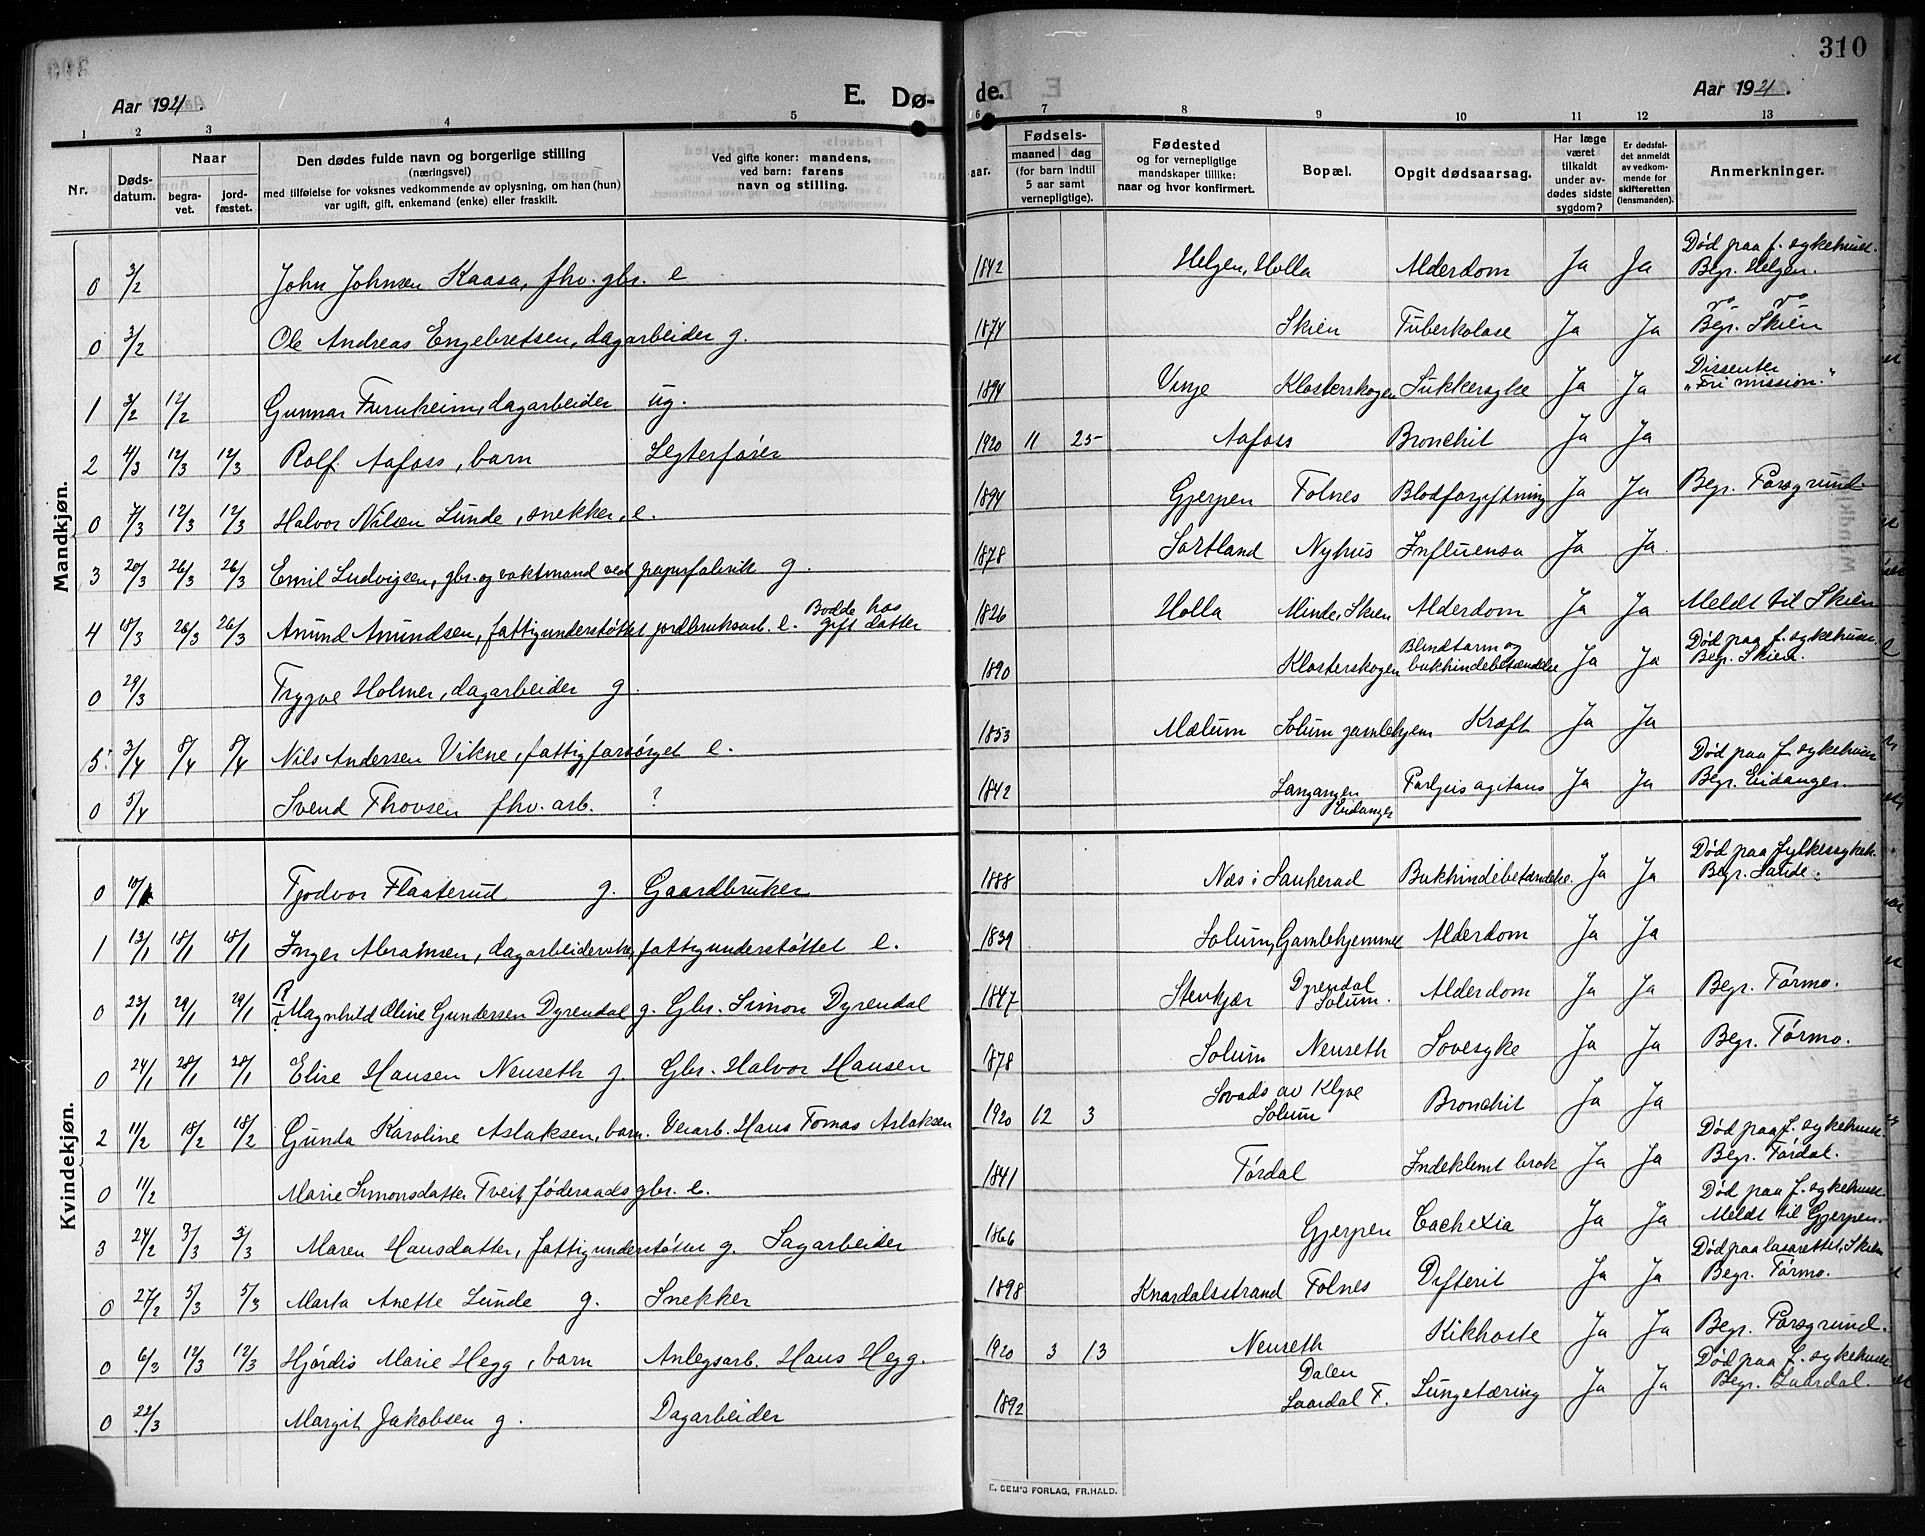 310
Aar 1921.
E. Dø- de.
Aar 1921.
1 2 3 4 5 6 7 8 9 10 11 12 13
Nr.
Døds-
datum.
Naar
begra-
vet.
jord-
fæstet.
Den dødes fulde navn og borgerlige stilling
(næringsvei)
med tilføielse for voksnes vedkommende av oplysning, om han (hun)
var ugift, gift, enkemand (enke) eller fraskilt.
Ved gifte koner: mandens,
ved barn: farens
navn og stilling.
aar.
Fødsels-
maaned dag
(for barn indtil
5 aar samt
vernepligtige).
Fødested
og for vernepligtige
mandskaper tillike:
naar og hvor konfirmert.
Bopæl.
Opgit dødsaarsag.
Har læge
været
tilkaldt
under av-
dødes sidste
sygdom?
Er dødsfal-
det anmeldt
av vedkom-
mende for
skifteretten
(lensmanden).
Anmerkninger.
Mandkjøn.
0 3/2 John Johnsen Kaasa, fhv. gbr. e 1842 Helgen, Holla Alderdom Ja Ja Død paa f. sykehuset. Begr. Helgen.
0 3/2 Ole Andreas Engebretsen, dagarbeider g. 1874 Skien Tuberkolose Ja Ja Begr. Skien
1 3/2 12/2 Gunnar Furuheim, dagarbeider ug. 1894 Vinje Klosterskogen Sukkersyke Ja Ja Dissenter "Fri mission."
2 4/3 12/3 12/3 Rolf Aafoss, barn Legterfører 1920 11 25 Aafoss Bronchit Ja Ja
0 7/3 12/3 12/3 Halvor Nilsen Lunde, snekker, e. 1894 Gjerpen Folnes Blodforgiftning Ja Ja Begr. Porsgrund.
3 20/3 26/3 26/3 Emil Ludvigsen, gbr. og vaktmand ved papirfabrik g. 1878 Sortland Nyhus Influensa Ja Ja.
4 18/3 26/3 26/3 Anund Anundsen, fattigunderstøttet jordbruksarb. e. Bodde hos gift datter 1826 Holla Minde, Skien Alderdom Ja Ja Meldt til Skien
0 29/3 Trygve Holmer, dagarbeider g. 1890 Klosterskogen Blindtarm og bukhindebetændelse Ja Ja Død paa f. sykehuset. Begr. Skien.
5 3/4 8/4 8/4 Nils Andersen Vikne, fattigforsørget e. 1853 Mælum Solum gamlehjem Kræft Ja Ja
0 5/4 Svend Thovsen fhv. arb. ? 1842 Langangen Eidanger Parlysis agitans Ja Ja Død paa f. sykehuset Begr. Eidanger.
Kvindekjøn.
0 Tjodvor Flaaterud g. Gaardbruker 1888 Næs i Sauherad Bukhindebetændelse Ja Ja Død paa fylkessykeh. Begr. Saude.
1 13/1 18/1 18/1 Inger Abramsen, dagarbeiderske, fattigunderstøttet e. 1839 Solum, Gamlehjemmet Alderdom Ja Ja
0 23/1 29/1 29/1 Magnhild Oline Gundersen Dyrendal g. Gbr. Simon Dyrendal 1847 Stenkjær Dyrendal Solum. Alderdom Ja Ja Begr. Tørmo.
0 24/1 28/1 28/1 Elise Hansen Neuseth g. Gbr. Halvor Hansen 1878 Solum Neuseth Sovesyke Ja Ja Begr. Tørmo.
2 11/2 18/2 18/2 Gunda Karoline Aslaksen, barn. Veiarb. Hans Tomas Aslaksen 1920 12 3 Sovads av Klyve Solum Bronchit Ja Ja
0 11/2 Marie Simonsdatter Tveit, føderaads gbr. e. 1841 Tørdal Indeklemt brok Ja Ja Død paa f. sykehuset. Begr. Tørdal.
3 24/2 3/3 3/3 Maren Hansdatter, fattigunderstøttet g. Sagarbeider 1866 Gjerpen Cachexia Ja Ja Død paa f. sykehuset. Meldt til Gjerpen.
0 27/2 5/3 5/3 Marta Anette Lunde g. Snekker 1898 Knardalsstrand Folnes Difterit Ja Ja Død paa lasarettet, Skien Begr. Tørmo.
0 6/3 12/3 12/3 Hjørdis Marie Hegg, barn Anlegsarb. Hans Hegg. 1920 3 13 Neuseth Kikhoste Ja Ja Begr. Porsgrund.
0 22/3 Margit Jakobsen g. Dagarbeider 1892 Dalen Laardal T. Lungetæring Ja Ja Død paa f. sykehuset Begr. Laardal.
E. SEM'S FORLAG, FR.HALD.